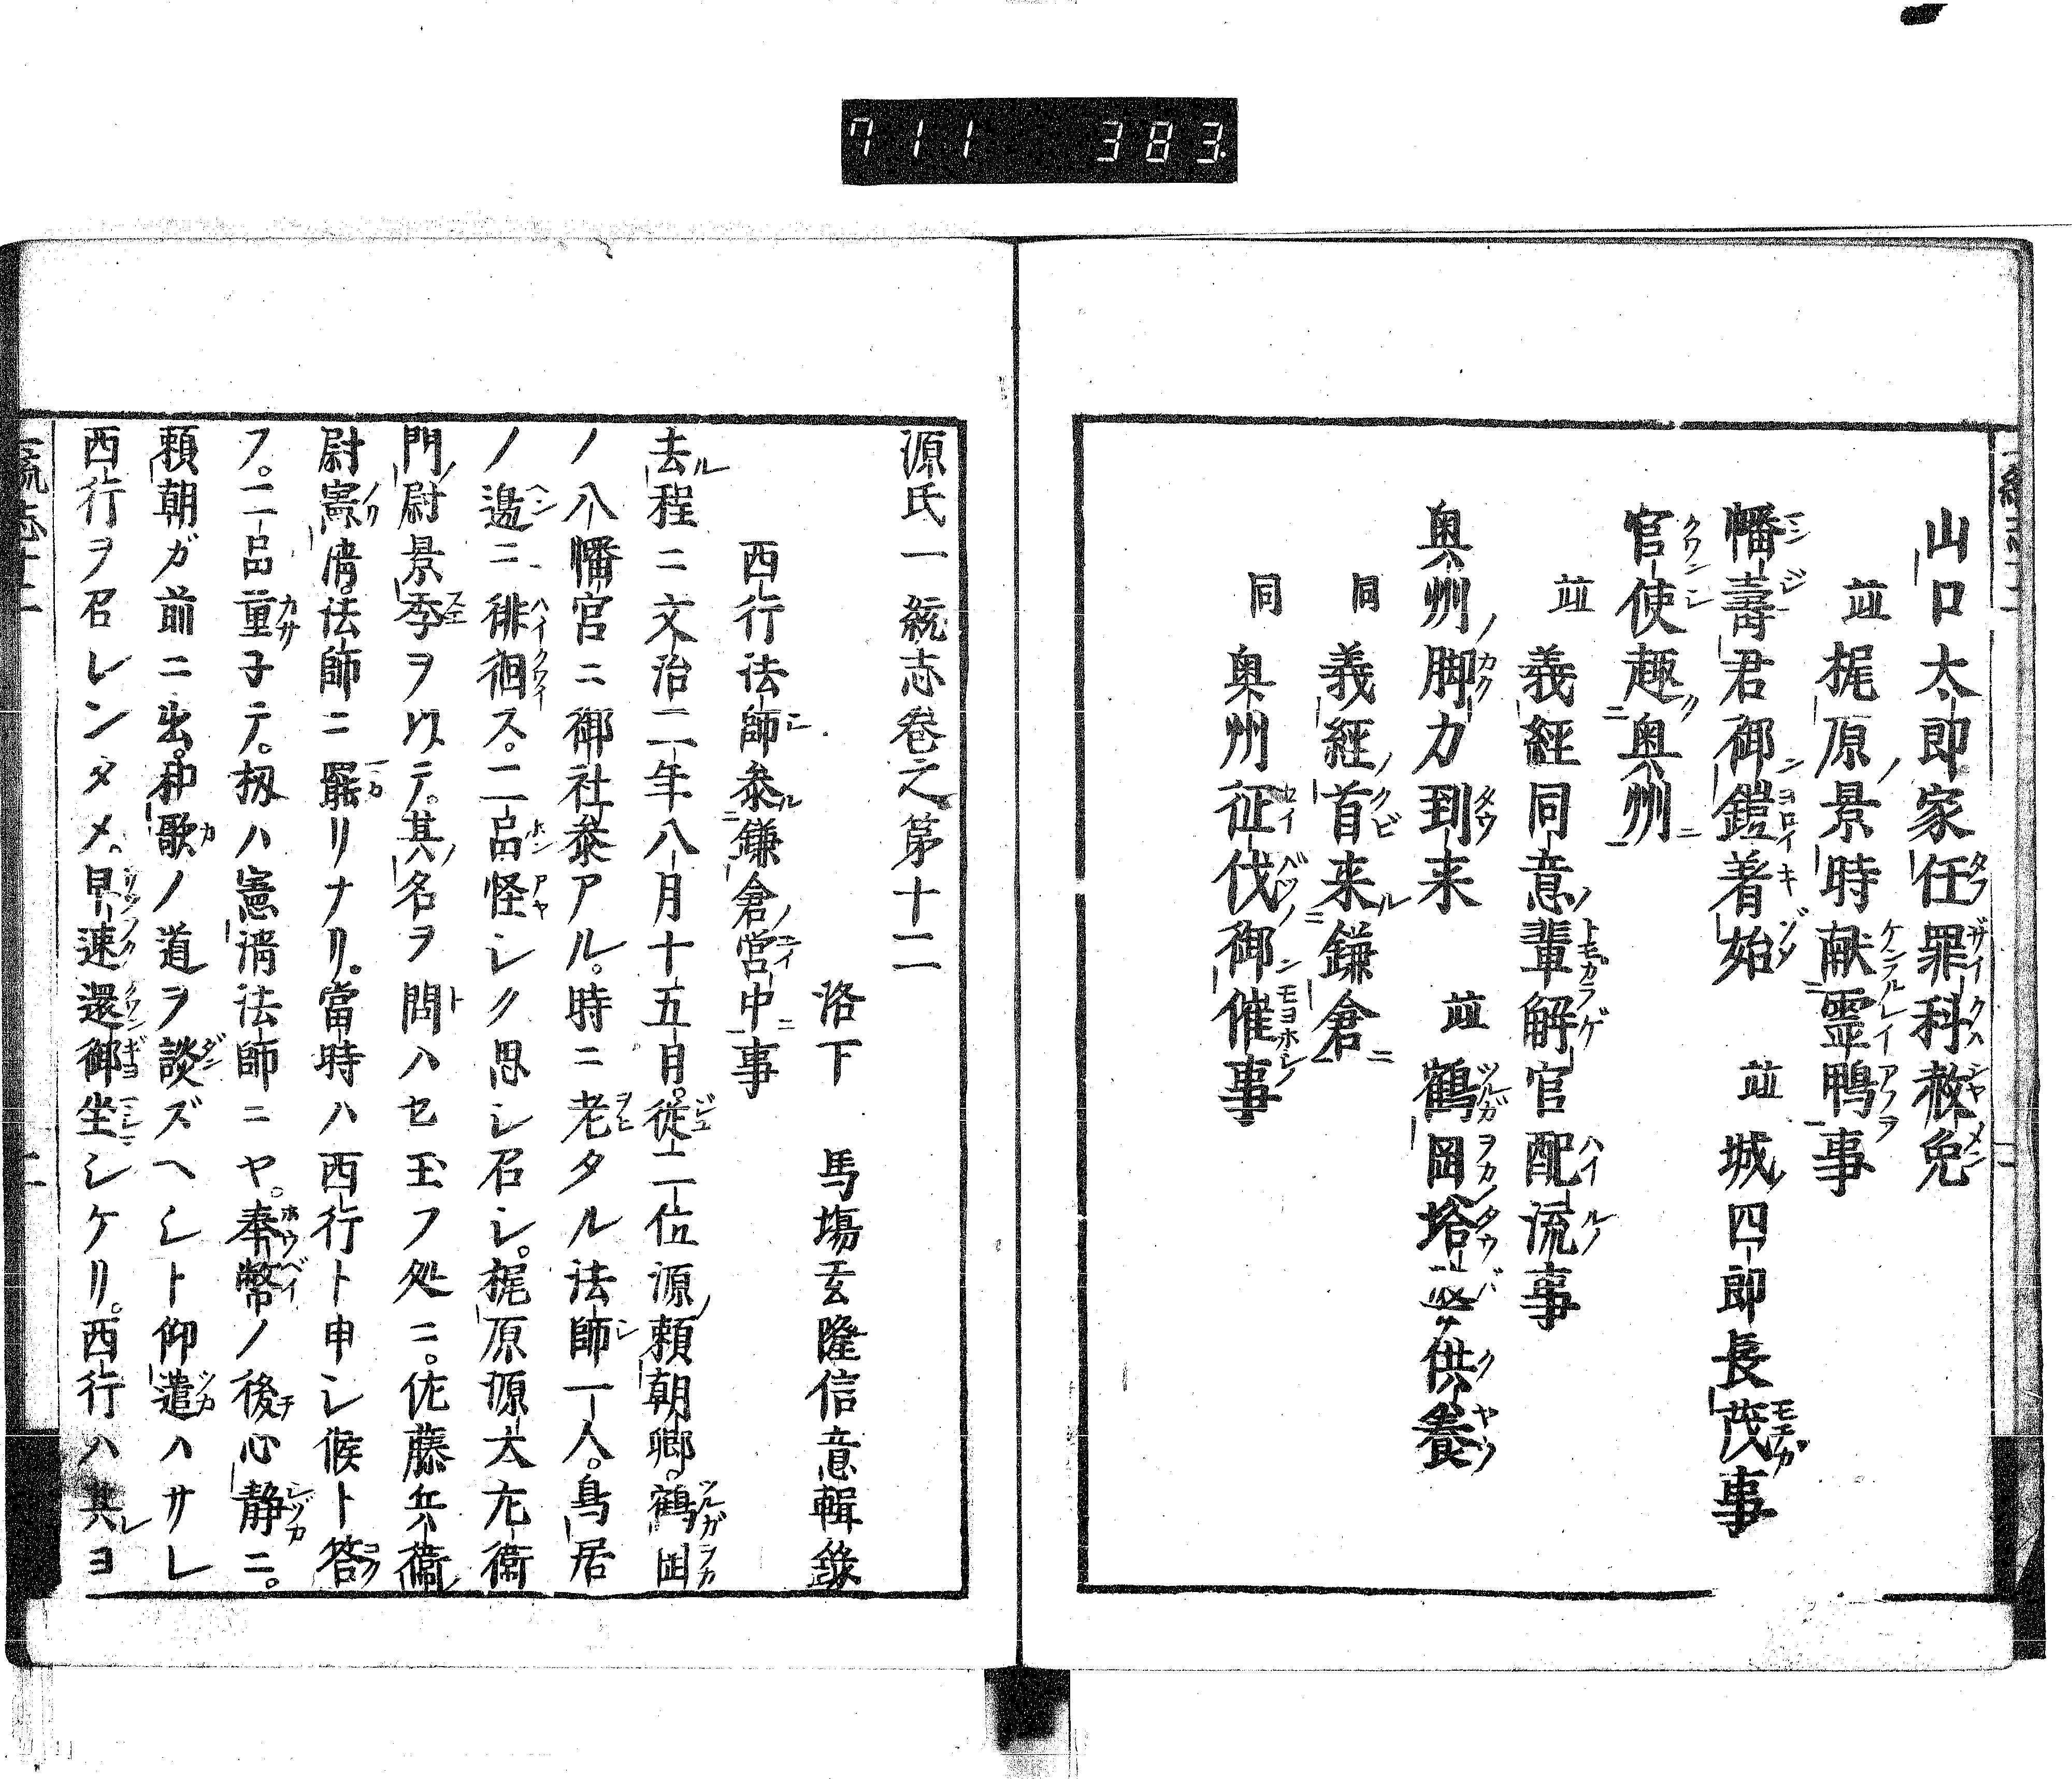 711 383.
山口太郎家任罪科赦免
並 梶原景時献霊鴨事
幡壽君御鎧着始 並 城四郎長茂事
官使趣奥州
並 義經同意輩解官配流事
奥州脚力到来 並 鶴岡塔婆供養
同 義經首来鎌倉
同 奥州征伐御催事
源氏一統志巻之第十二
洛下 馬場玄隆信意輯錄
西行法師参鎌倉営中事
去程ニ文治二年八月十五日。從二位源頼朝卿。鶴岡
ノ八幡官ニ御社参アル。時ニ老タル法師一人。鳥居
ノ邉ニ徘徊ス。二品怪シク思シ召シ。梶原源太左衛
門尉景季ヲ以テ。其名ヲ問ハセ玉フ処ニ。佐藤兵衛
尉憲清法師ニ罷リナリ。當時ハ西行ト申シ候ト答
フ。二品重子テ。扨ハ憲清法師ニヤ。奉幣ノ後心静ニ。
頼朝ガ前ニ出。和歌ノ道ヲ談ズヘシト仰遣ハサレ
西行ヲ召レンタメ。早速還御坐シケリ。西行ハ其ヨ